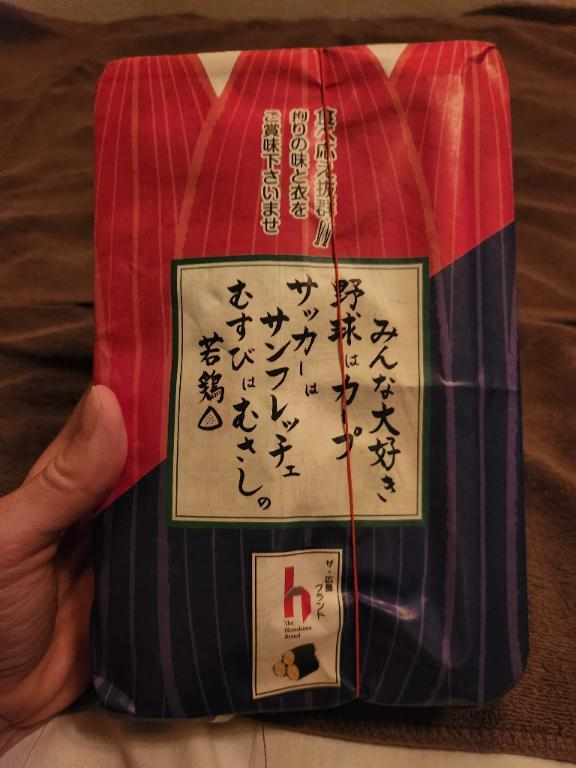 食べ応え抜群!!!
拘りの味と衣を
ご賞味下さいませ
みんな大好き
野球はカープ
サッカーは
サンフレッチェ
むすびはむさしの
若鶏
ザ・広島
ブランド
h
The
Hiroshima
Brand